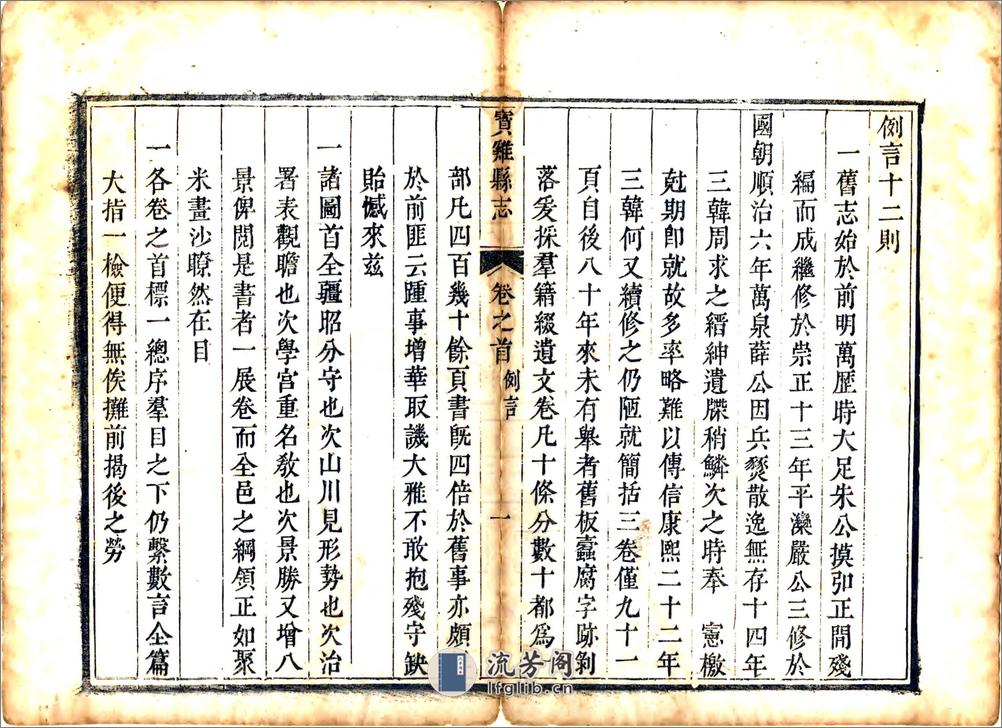 例言十二則
一舊志始於前明萬歷時大足朱公摸弘正間殘
編而成繼修於崇正十三年平灤嚴公三修於
國朝順治六年萬泉薛公因兵燹散逸無存十四年
三韓周求之縉紳遺牒稍鱗次之時奉 憲檄
尅期卽就故多率略難以傳信康熙二十二年
三韓何又續修之仍陋就簡括三卷僅九十一
頁自後八十年來未有舉者舊板蠹腐字跡剝
落爰採羣籍綴遺文卷凡十條分數十都爲
寶雞縣志
卷之首
例言
一
部凡四百幾十餘頁書旣四倍於舊事亦頗
於前匪云踵事增華取譏大雅不敢抱殘守缺
貽憾來兹
一諸圖首全疆昭分守也次山川見形勢也次治
署表觀瞻也次學宮重名敎也次景勝又增八
景俾閱是書者一展卷而全邑之綱領正如聚
米畫沙瞭然在目
一各卷之首標一總序羣目之下仍繫數言全篇
大指一檢便得無俟攤前揭後之勞
流芳阁
lfglib.cn